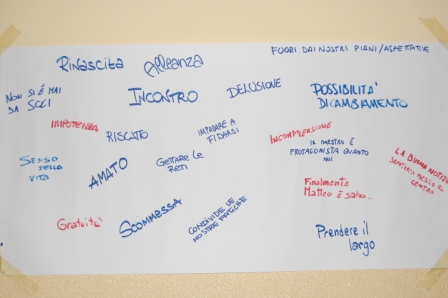 FUORI DAI NOSTRI PIANI/ASPETTATIVE
Rinascita
Alleanza
NON SI È MAI
DA SOLI
INCONTRO
DELUSIONE
POSSIBILITA'
DI CAMBIAMENTO
IMPOTENZA
RISCATTO
IMPARARE A
FIDARSI
INCOMPRENSIONE
IL MAESTRO È
PROTAGONISTA QUANTO
NOI
LA BUONA NOTIZIA
SENTIRSI MESSO AL
CENTRO
SENSO
DELLA
VITA
AMATO
GETTARE LE
RETI
Finalmente
Matteo è salvo...
Gratuita'
SCOMMESSA
CONDIVIDE LE
NOSTRE FATICHE
Prendere il
largo